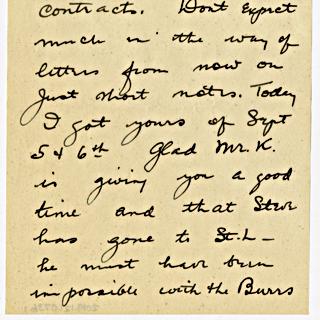 contracts. Dont expect
much in the way of
letters from now on
Just short notes. Today
I got yours of Sept
5 & 6th Glad Mr. K.
is giving you a good
time and that Steve
has gone to St. L—
he must have been
impossible with the Burrs